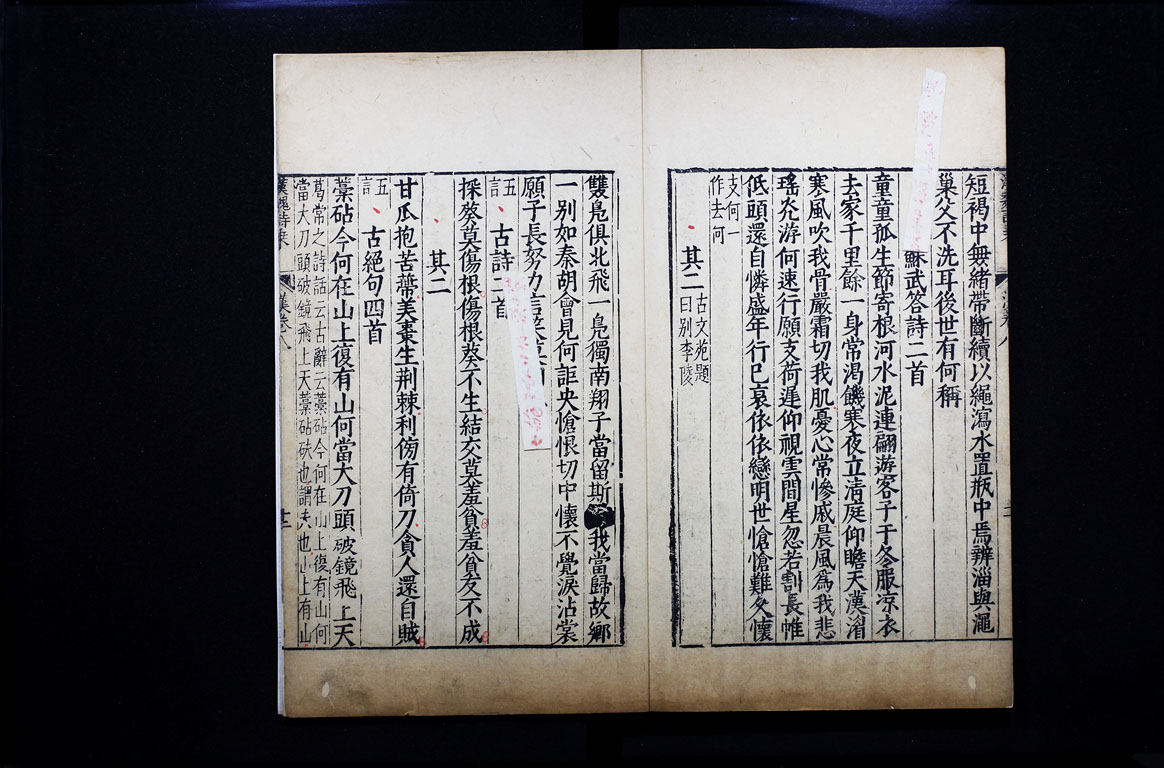 短褐中無緒帶斷續以繩瀉水置瓶中焉辨淄與澠
巢父不洗耳後世有何稱
蘇武答詩二首
童童孤生節寄根河水泥連翩游客子于冬服涼衣
去家千里餘一身常渴饑寒夜立清庭仰瞻天漢湄
寒風吹我骨嚴霜切我肌憂心常慘戚晨風為我悲
瑤光游何速行願支荷遲仰視雲間星忽若割長帷
低頭還自憐盛年行已衰依依戀明世愴愴難久懷
支何一
作去何
其二
古文苑題
曰别李陵
雙鳧俱北飛一鳧獨南翔子當留斯我當歸故鄉
一别如秦胡會見何詎央愴恨切中懷不覺淚沾裳
願子長努力言笑莫
五
言
古詩二首
採葵莫傷根傷根葵不生結交莫羞貧羞貧友不成
其二
甘瓜抱苦蔕美棗生荆棘利傍有倚刀貪人還自賊
五
言
古絕句四首
藁砧今何在山上復有山何當大刀頭破鏡飛上天
葛常之詩話云古辭云藁砧今何在山上復有山何
當大刀頭破鏡飛上天藁砧砆也謂夫也山上有山
漢魏詩乘
漢卷八